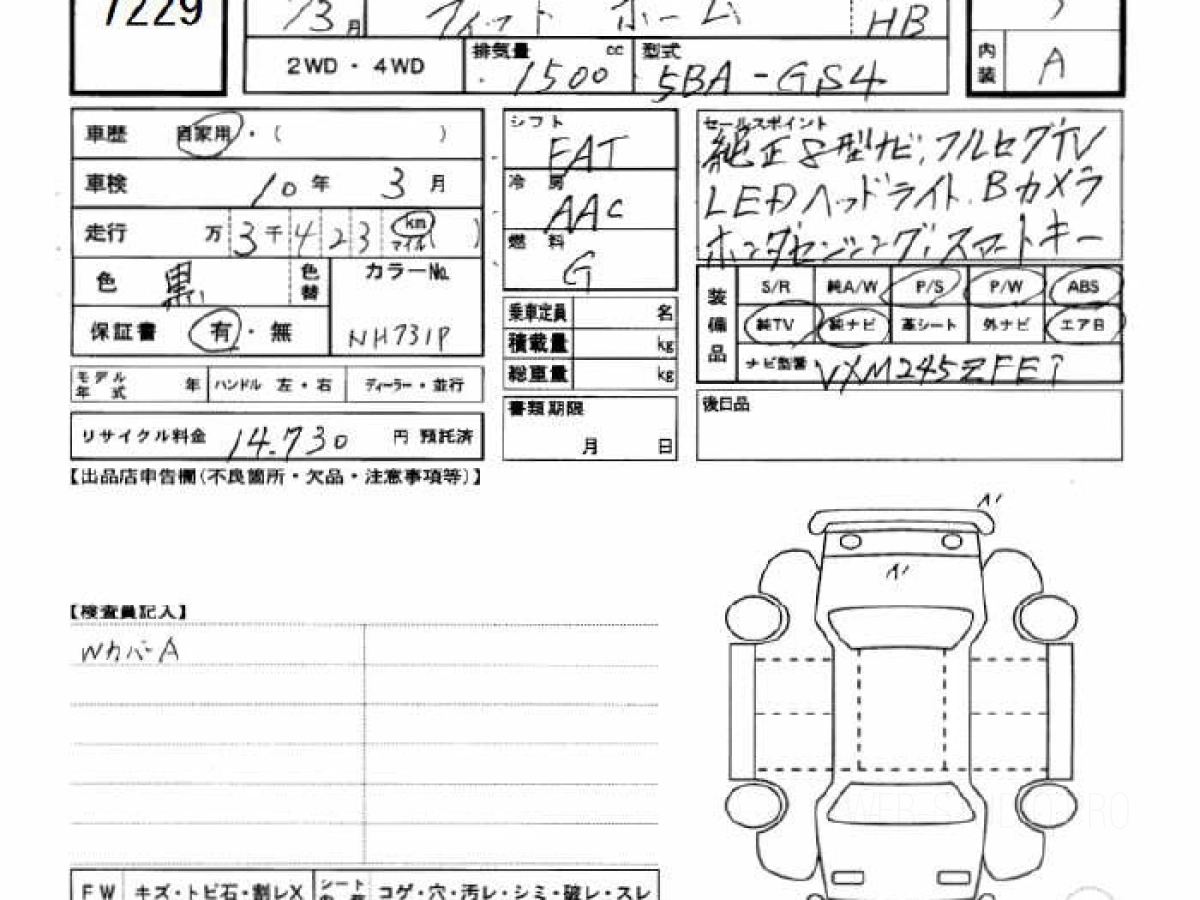 7229
3月 フィット ホーム HB
2WD・4WD 排気量 1500 cc 型式 5BA-GS4
内装 A
車歴 自家用・( )
車検 10年 3月
走行 万3千423 km マイル( )
色 黒 色替 カラーNo. NH731P
保証書 有・無
モデル年式 年 ハンドル 左・右 ディーラー・並行
リサイクル料金 14.730 円 預託済
シフト FAT
冷房 AAC
燃料 G
乗車定員 名
積載量 kg
総重量 kg
書類期限 月 日
セールスポイント
純正8型ナビ、フルセグTV
LEDヘッドライト、Bカメラ
ホンダセンシング、スマートキー
装備品 S/R 純A/W P/S P/W ABS
純TV 純ナビ 革シート 外ナビ エアB
ナビ型番 VXM245ZFEi
後日品
【出品店申告欄(不良箇所・欠品・注意事項等)】
【検査員記入】
WカバーA
FW キズ・トビ石・割レX シート コゲ・穴・汚レ・シミ・破レ・スレ